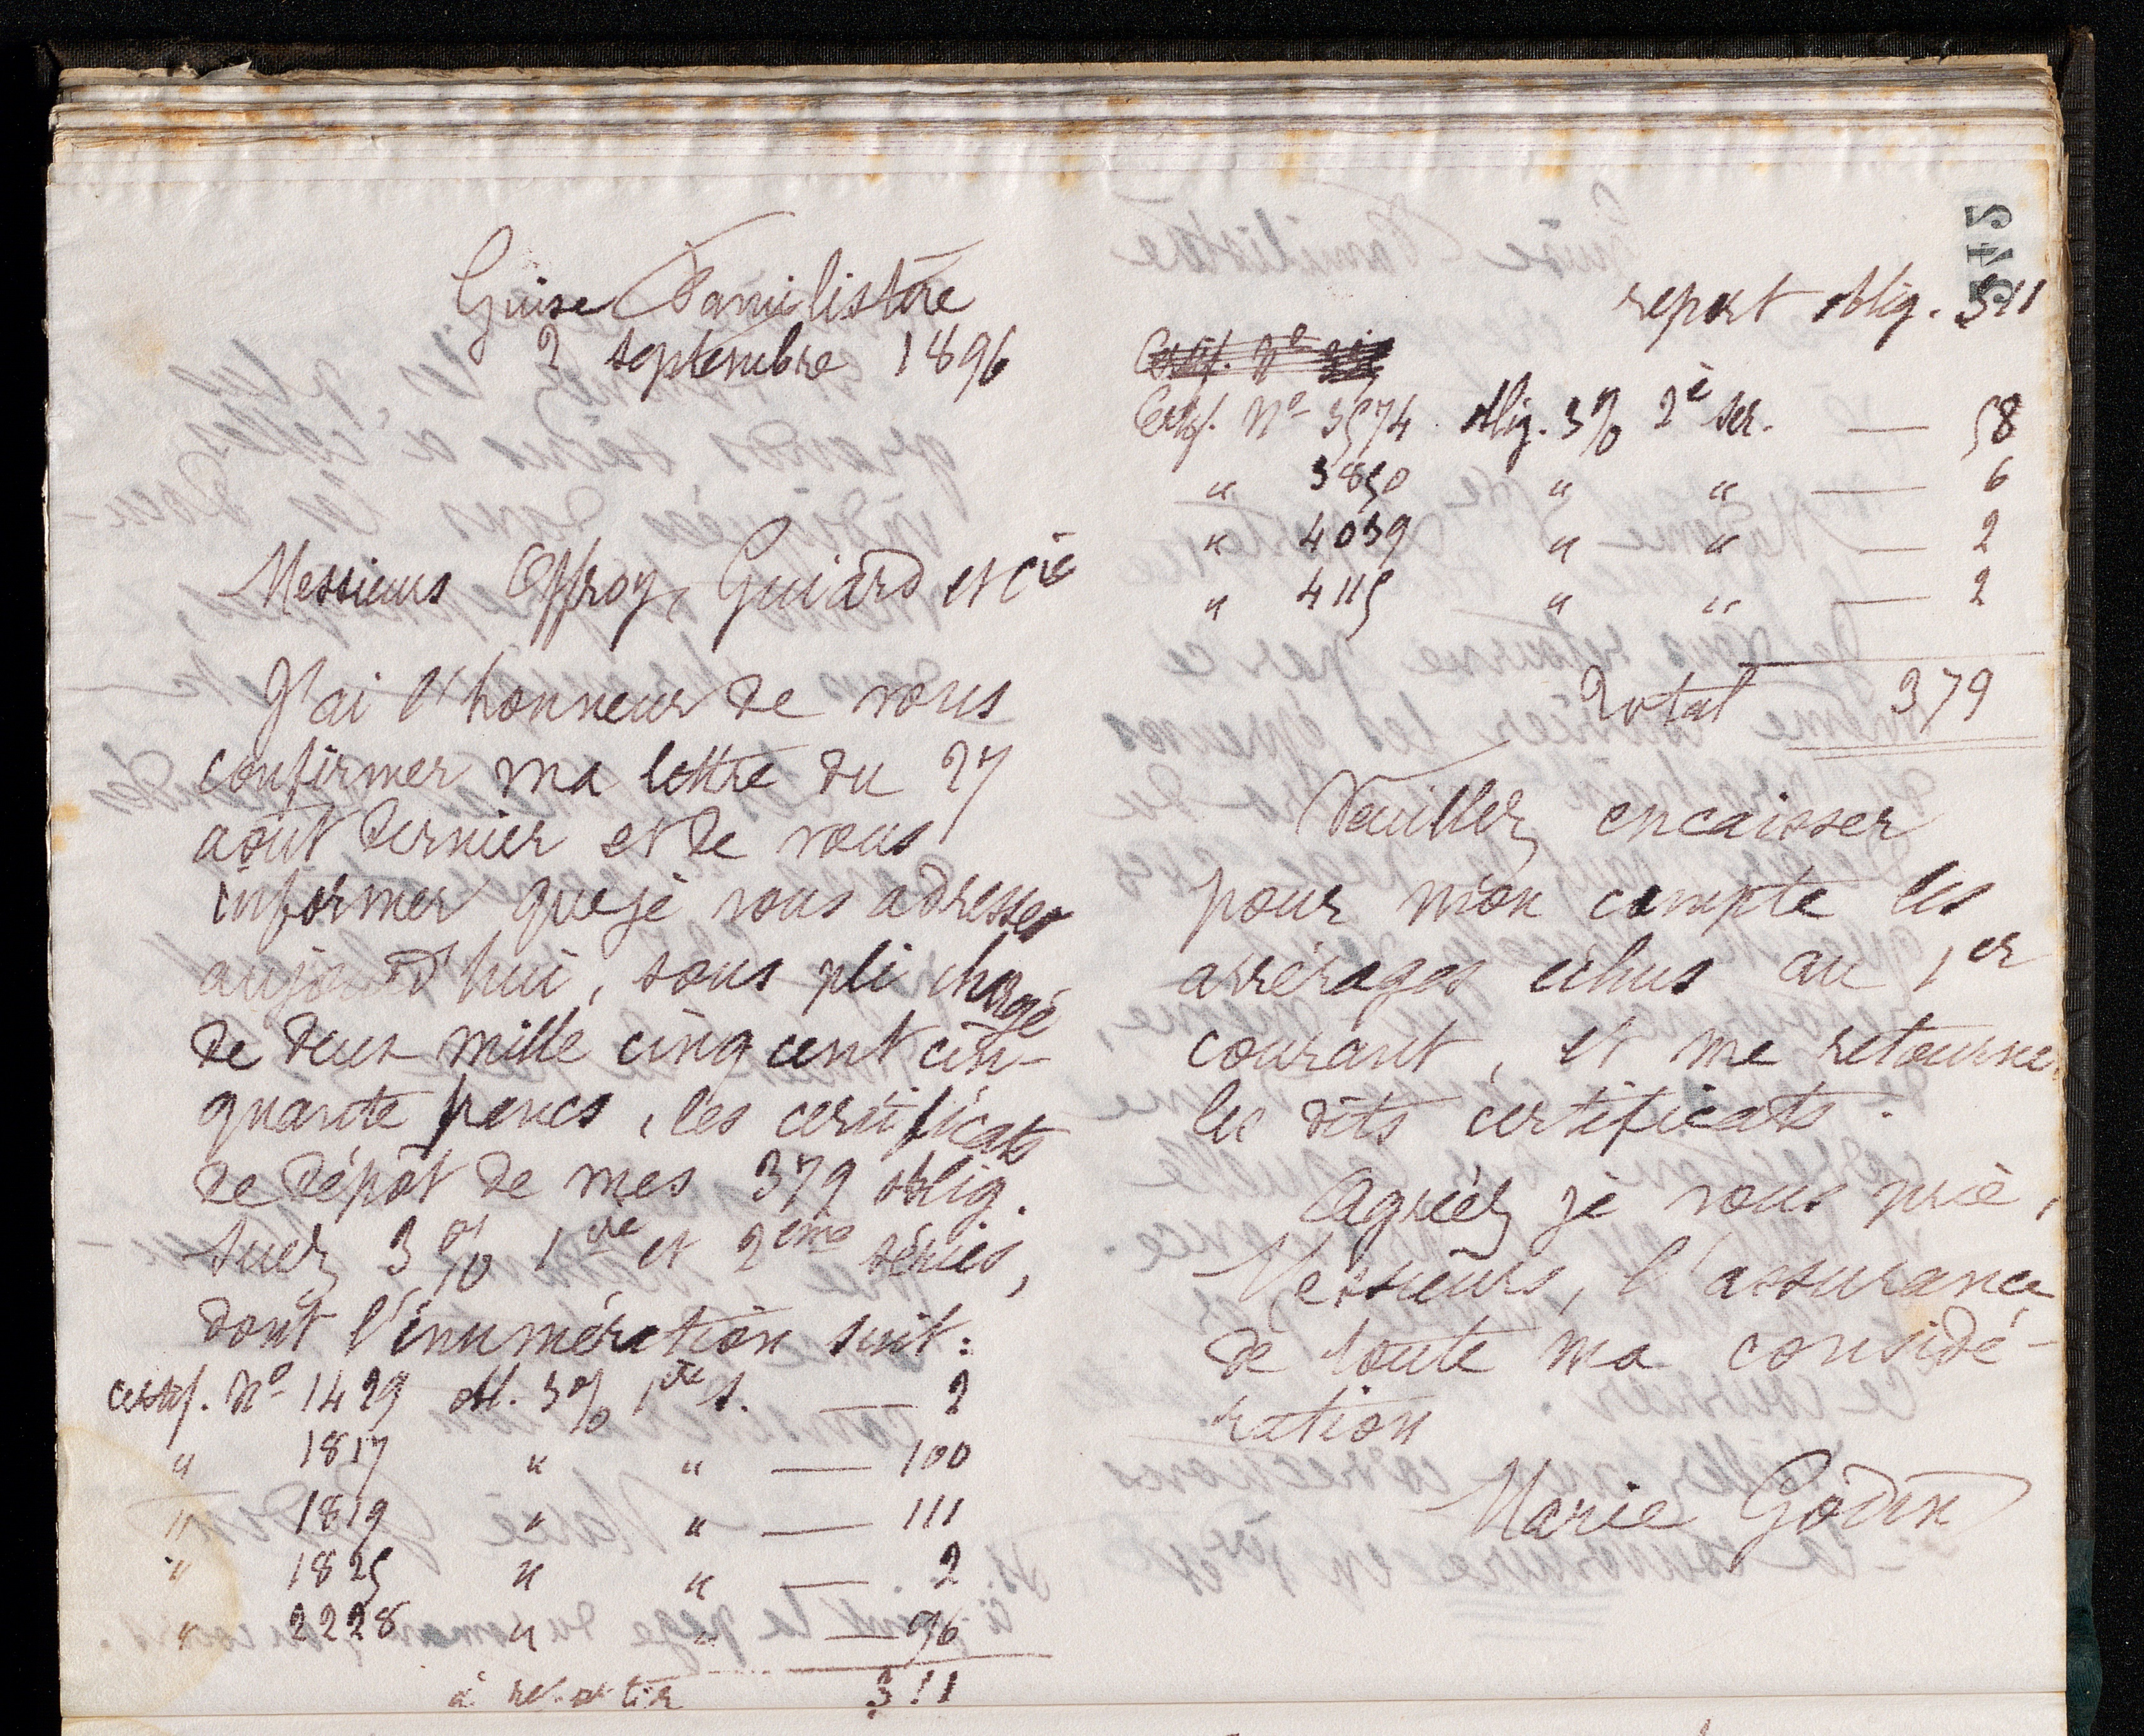 Guise Familistère
2 septembre 1896
Messieurs Offroy, Guiard et Cie
J'ai l'honneur de vous
confirmer ma lettre du 27
août dernier et de vous
informer que je vous adresse
aujourd'hui, sous pli chargé
de deux mille cinq cent cin-
quante francs, les certificats
de dépôt de mes 379 oblig.
Suez 3 % 1re et 2ème séries,
dont l'énumération suit:
certif. No 1429 obl. 3% 1re s. — 2
" 1817 " " — 100
" 1819 " " — 111
" 1825 " " — 2
" 2228 " " — 96
à reporter 311
545
report oblig. 311
Certif. No
Certif. No 3574 oblig. 3% 2e ser. — 58
" 3850 " " — 6
" 4039 " " — 2
" 4115 " " — 2
Total 379
Veuillez encaisser
pour mon compte les
arrérages échus au 1er
courant, et me retourner
les dits certificats.
Agréez je vous prie,
Messieurs, l'assurance
de toute ma considé-
ration
Marie Godin